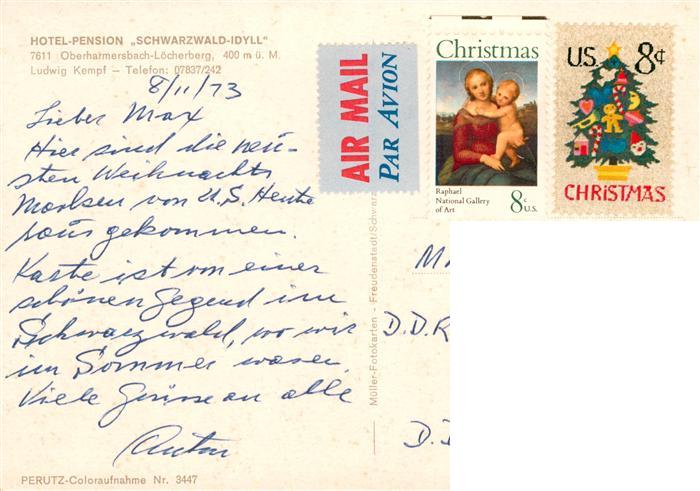 HOTEL-PENSION „SCHWARZWALD-IDYLL"
7611 Oberharmersbach-Löcherberg, 400 m ü. M.
Ludwig Kempf – Telefon: 07837/242
8/11/73
Lieber Max
Hier sind die neu-
sten Weihnachts
Marken von U.S. Heute
rausgekommen.
Karte ist von einer
schönen Gegend im
Schwarzwald, wo wir
im Sommer waren.
Viele Grüsse an alle
Anton
PERUTZ-Coloraufnahme Nr. 3447
Müller-Fotokarten - Freudenstadt/Schwarz
AIR MAIL
PAR AVION
Christmas
Raphael
National Gallery
of Art
8c
U.S.
U.S. 8¢
CHRISTMAS
D.D.R
D.D